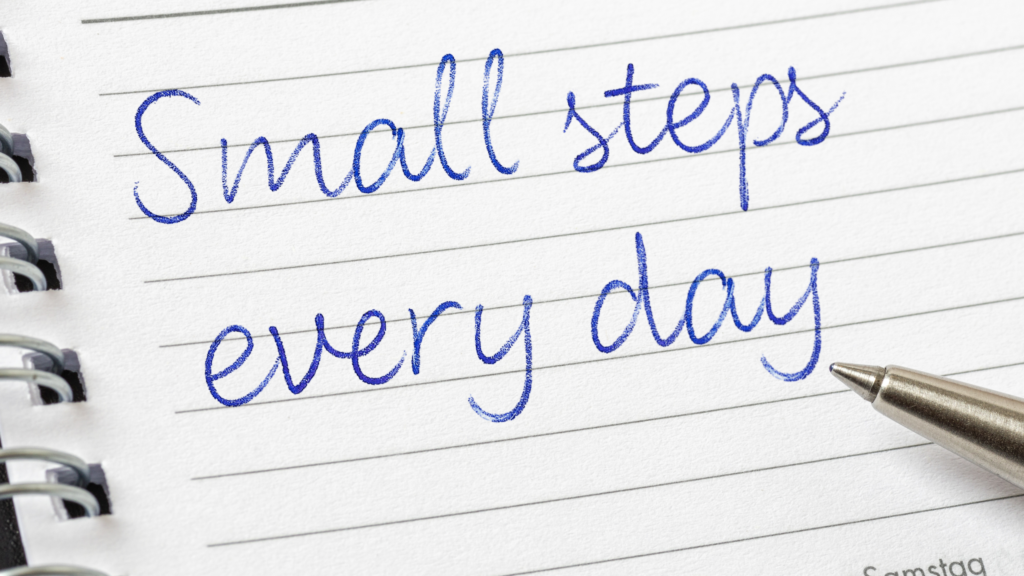 Small steps
every day
Samstag